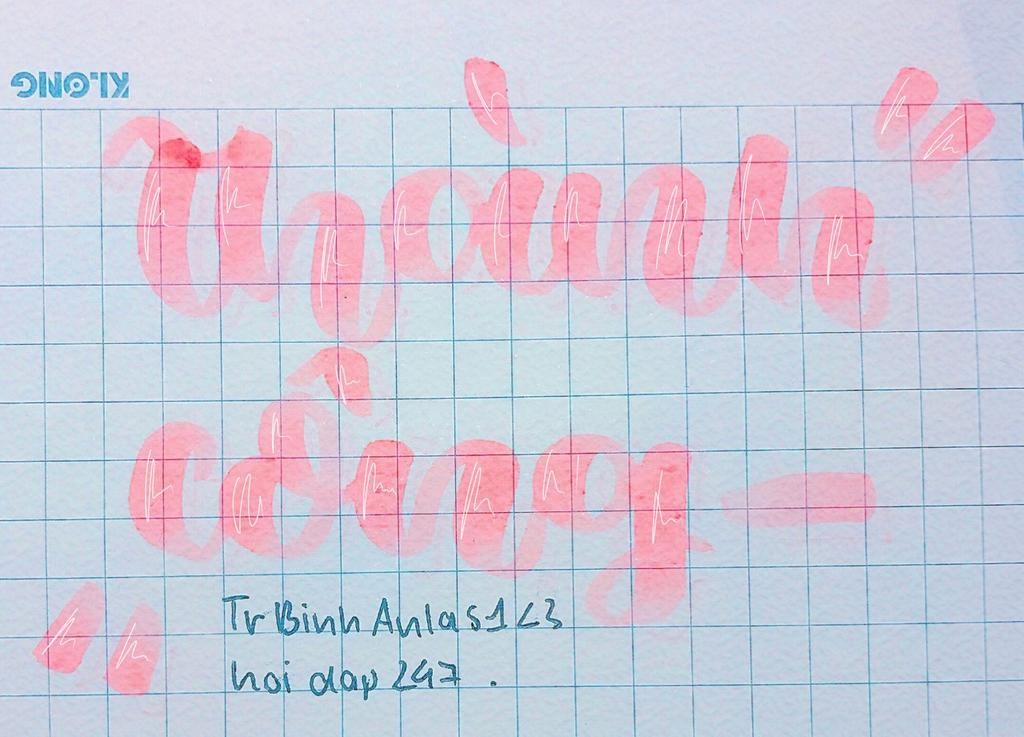 KLONG
Thành "
công -
" Tr Binh Anlas1<3
hoi dap 247 .